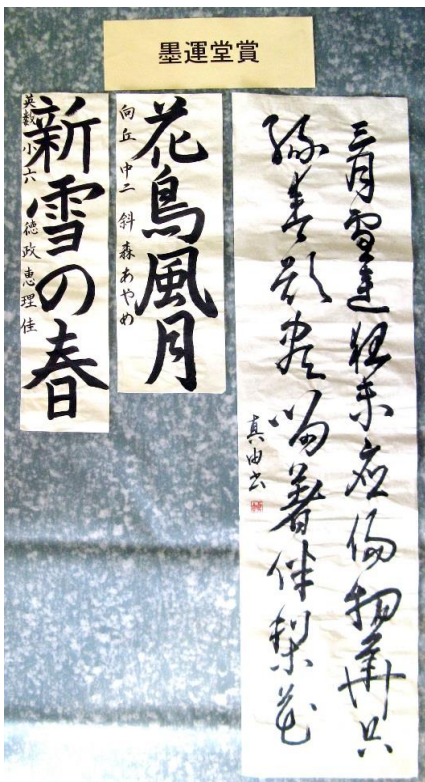 墨運堂賞
三月雪連夜未應傷物華只
緣春欲盡留著伴梨花
真由書
花鳥風月
向丘 中二 斜森あやめ
新雪の春
英数 小六 徳政恵理佳